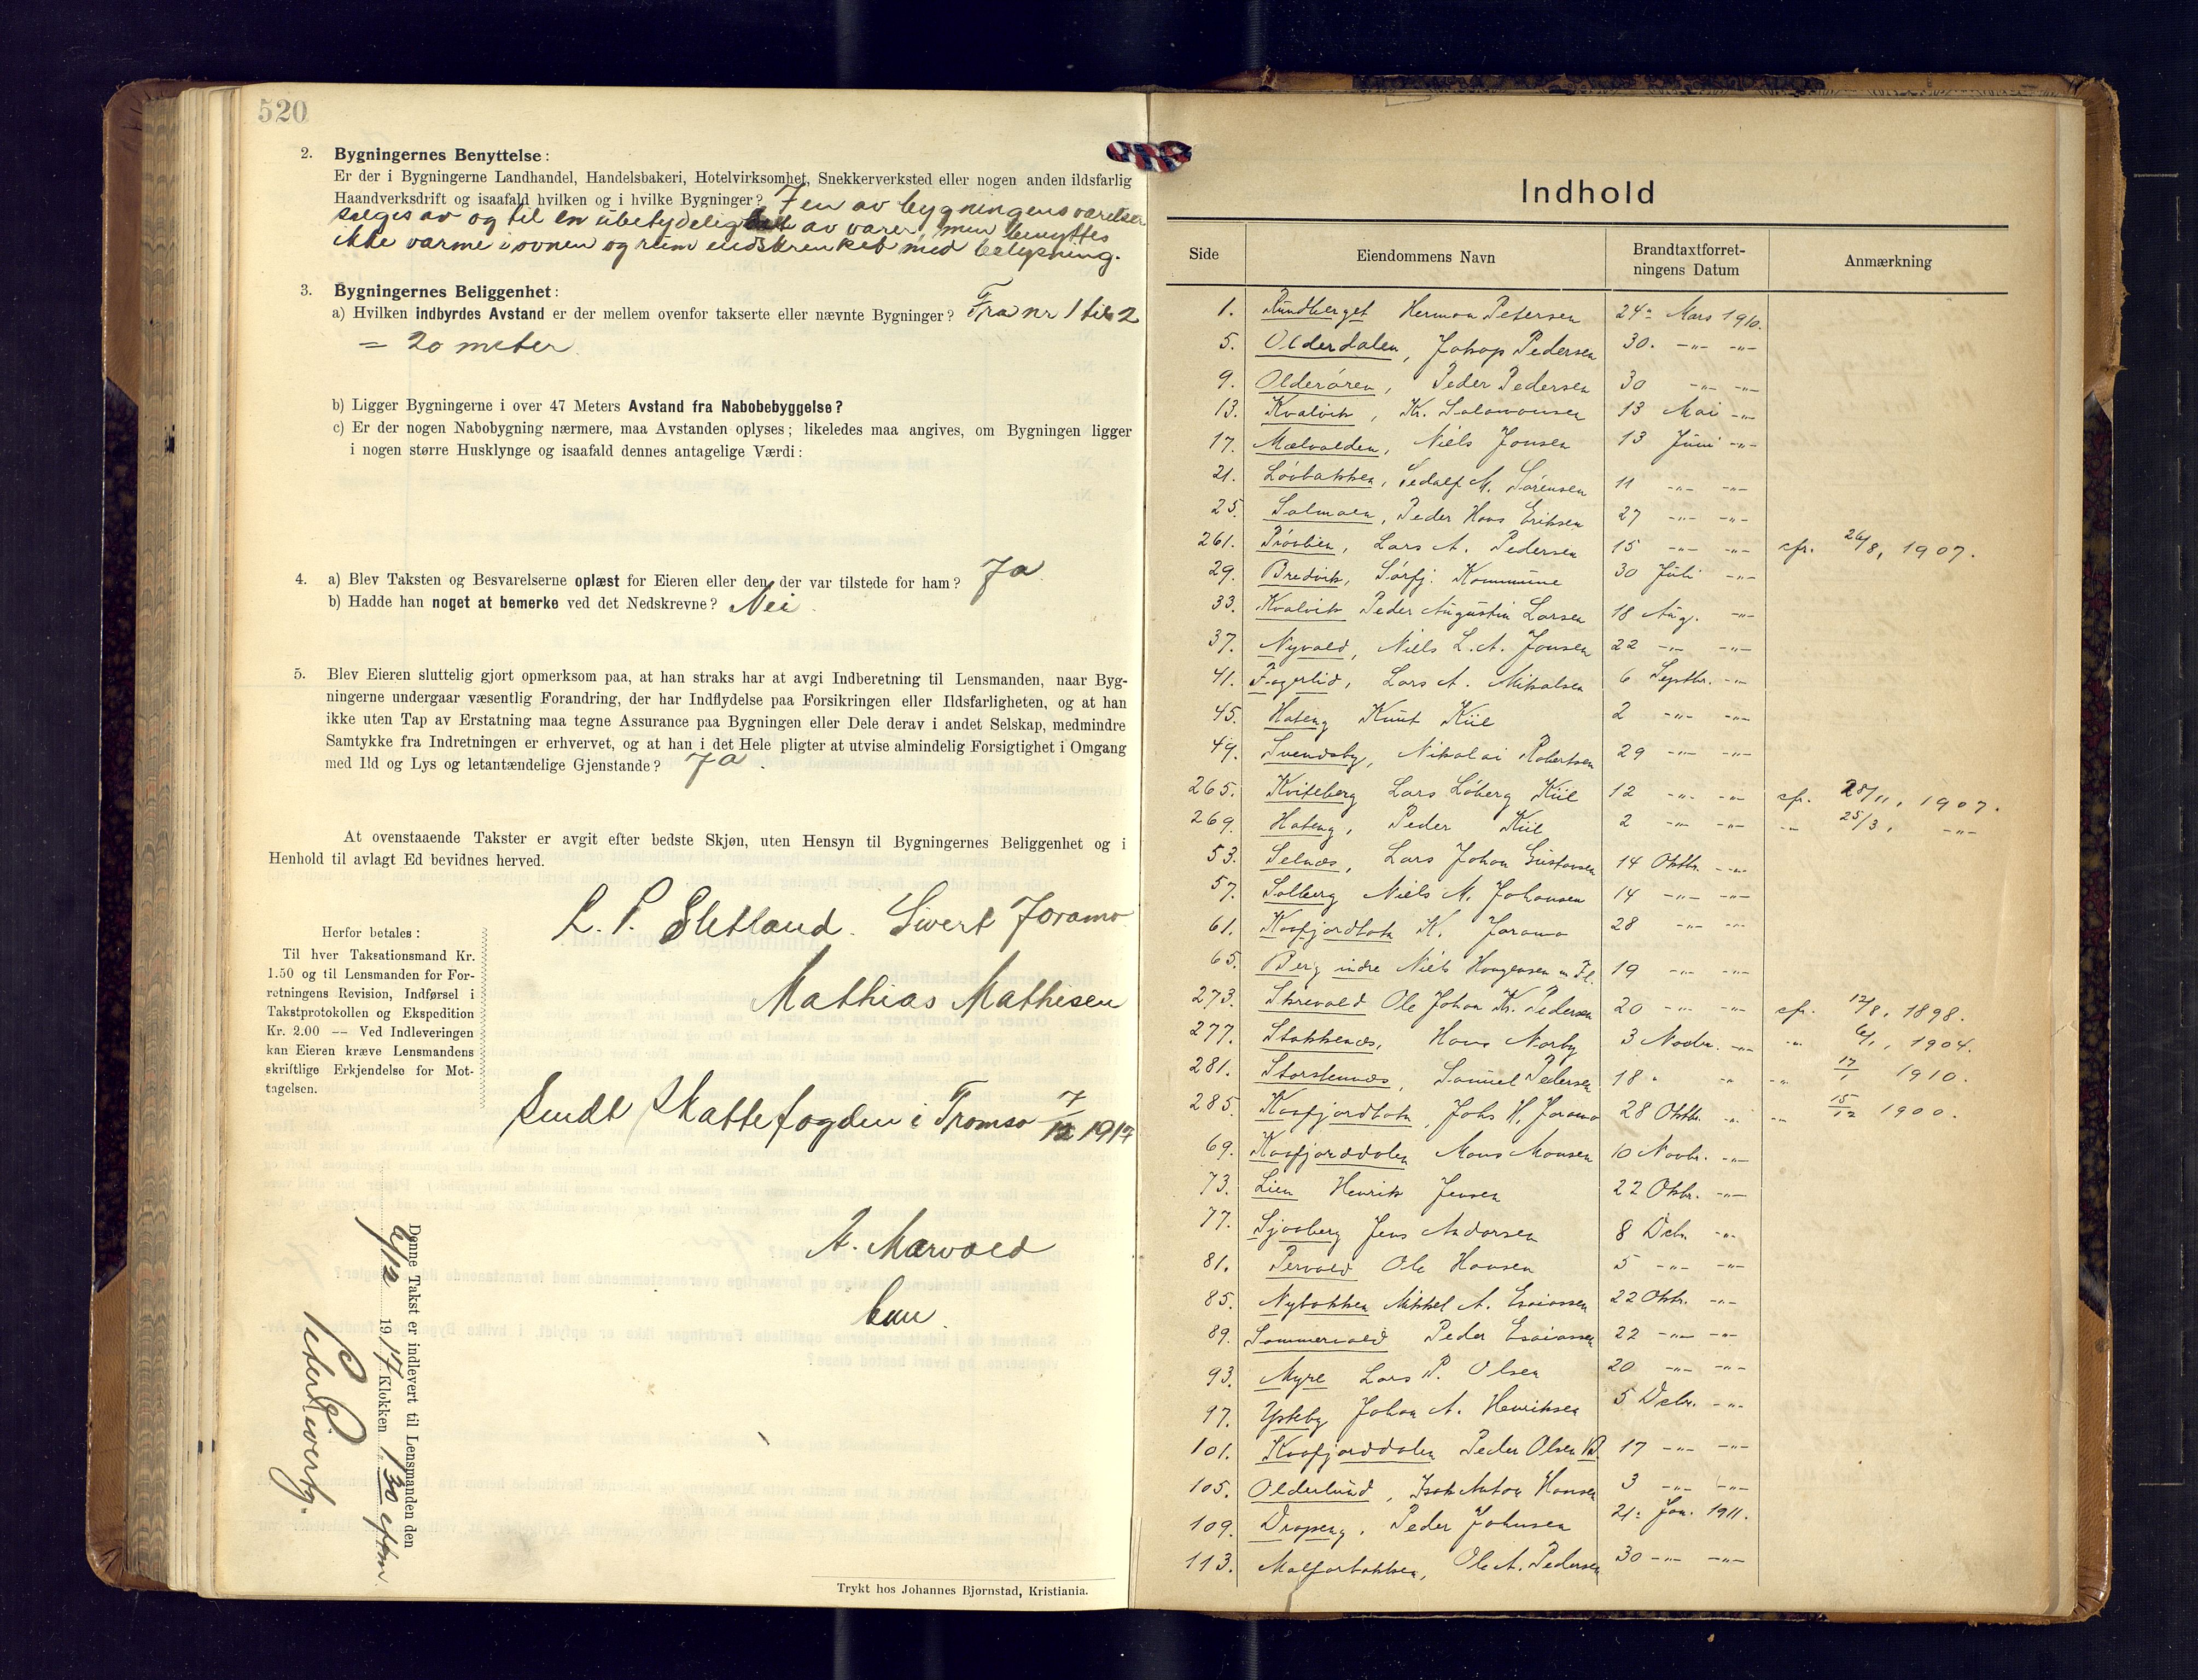 520
2. Bygningernes Benyttelse:
Er der i Bygningerne Landhandel, Handelsbakeri, Hotelvirksomhet, Snekkerverksted eller nogen anden ildsfarlig
Haandverksdrift og isaafald hvilken og i hvilke Bygninger? I en av bygningens værelser
sælges av og til en ubetydelig av varer, men benyttes
ikke varme i ovnen og rum med belysning.
3. Bygningernes Beliggenhet:
a) Hvilken indbyrdes Avstand er der mellem ovenfor takserte eller nævnte Bygninger? Fra nr 1 til 2
= 20 meter
b) Ligger Bygningerne i over 47 Meters Avstand fra Nabobebyggelse?
c) Er der nogen Nabobygning nærmere, maa Avstanden oplyses; likeledes maa angives, om Bygningen ligger
i nogen større Husklynge og isaafald dennes antagelige Værdi:
4. a) Blev Taksten og Besvarelserne oplæst for Eieren eller den, der var tilstede for ham? Ja
b) Hadde han noget at bemerke ved det Nedskrevne? Nei
5. Blev Eieren sluttelig gjort opmerksom paa, at han straks har at avgi Indberetning til Lensmanden, naar Byg-
ningerne undergaar væsentlig Forandring, der har Indflydelse paa Forsikringen eller Ildsfarligheten, og at han
ikke uten Tap av Erstatning maa tegne Assurance paa Bygningen eller Dele derav i andet Selskap, medmindre
Samtykke fra Indretningen er erhvervet, og at han i det Hele pligter at utvise almindelig Forsigtighet i Omgang
med Ild og Lys og letantændelige Gjenstande? Ja.
At ovenstaaende Takster er avgit efter bedste Skjøn, uten Hensyn til Bygningernes Beliggenhet og i
Henhold til avlagt Ed bevidnes herved.
L. P. Sletland. Sivert Joramo
Mathias Mathisen
Herfor betales:
Til hver Taksationsmand Kr.
1.50 og til Lensmanden for For-
retningens Revision, Indførsel i
Takstprotokollen og Ekspedition
Kr. 2.00 — Ved Indleveringen
kan Eieren kræve Lensmandens
skriftlige Erkjendelse for Mot-
tagelsen.
Sendt Skattefogden i Tromsø 7/12 1917
A. Marvold
Denne Takst er indlevert til Lensmanden den
6/12 1917 Klokken 1 30 eftm.
Trykt hos Johannes Bjørnstad, Kristiania.
Indhold
Side Eiendommens Navn Brandtaxtforret-ningens Datum Anmærkning
1. Rundberget Herman Petersen 24 Mars 1910.
5. Olderdalen, Jakop Pedersen 30. -"- -"-
9. Olderøren, Peder Pedersen 30 -"- -"-
13. Kvalvik, Kr. Salamonsen 13 Mai -"-
17. Mælvolden, Niels Jonsen 13 Juni -"-
21. Løvbakken, Sedolf M. Sørensen 11 -"- -"-
25. Salmoen, Peder Hans Eriksen 27 -"- -"-
261. Lars A. Pedersen 15 -"- -"- cfr. 26/8, 1907.
29. Bredvik, Sørfj. Kommune 30 Juli -"-
33. Kvalvik Peder Augustin Larsen 18 Aug. -"-
37. Nyvold, Niels L. A. Jonsen 22 -"- -"-
41. Fagerlid, Lars A. Mikalsen 6 Septbr. -"-
45. Hateng Knut Kiil 2 -"- -"-
49. Svendsby, Nikolai Robertsen 29 -"- -"-
265. Kviteberg Lars Løberg Kiil 12 -"- -"- cfr. 28/11, 1907.
269. Hateng, Peder Kiil 2 -"- -"- -"- 25/3, -"-
53. Selnæs, Lars Johan Gustavsen 14 Oktbr. -"-
57. Solberg Niels M. Johansen 14 -"- -"-
61. Kaafjordbotn K. Joramo 28 -"- -"-
65. Berg indre Niels Haugensen m. fl. 19 -"- -"-
273. Skrevold Ole Johan Kr. Pedersen 20 -"- -"- cfr. 12/8, 1898.
277. Stokkenæs, Hans Norby 3 Novbr. -"- -"- 6/1, 1904.
281. Storstennæs, Samuel Pedersen 18 " -"- -"- 17/1 1910.
285. Kaafjordbotn, Johs H. Joramo 28 Oktbr. -"- -"- 15/12 1900.
69. Kaafjorddalen Mons Monsen 10 Novbr. -"-
73. Lien Henrik Jensen 22 Oktbr. -"-
77. Sjovberg Jens Andersen 8 Debr. -"-
81. Pervold Ole Hansen 5 -"- -"-
85. Nybakken Mikkel A. Esaiassen 22 Oktbr. -"-
89. Sommervold Peder Esaiassen 22 -"- -"-
93. Myre Lars P. Olsen 20 -"- -"-
97. Ysteby Johan A. Henriksen 5 Debr. -"-
101. Kaafjorddalen Peder Olsen 17 -"- -"-
105. Olderlund, Isak Anton Hansen 3 -"- -"-
109. Drapeng, Peder Johnsen 21 Jan. 1911.
113. Ole A. Pedersen 30 -"- -"-